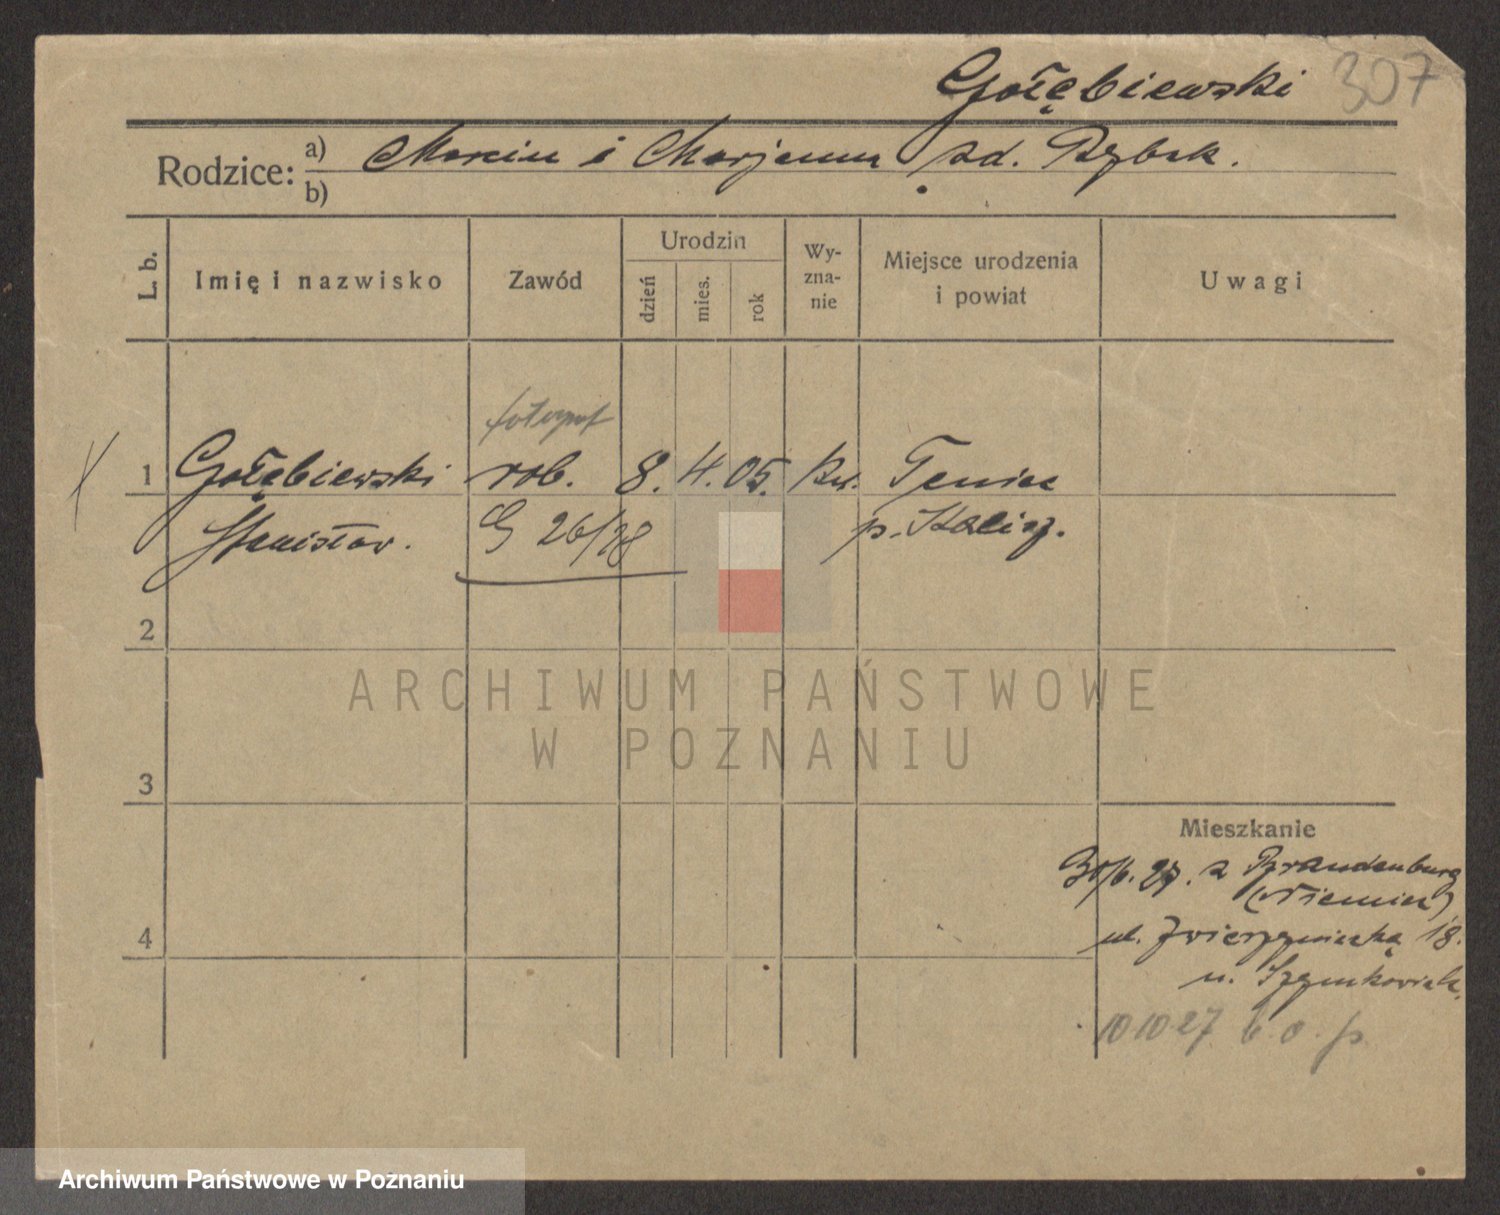 Gołębiewski 307
Rodzice: a) Marcin i Marjanna zd. Rybak.
b)
L. b. Imię i nazwisko Zawód Urodzin dzień mies. rok Wy-zna-nie Miejsce urodzenia i powiat Uwagi
fotograf
1 Gołębiewski rob. 8. 4. 05. Kat.
Stanisław. G 26/28 p. Kalisz.
2
ARCHIWUM PAŃSTWOWE
W POZNANIU
3
Mieszkanie
30/6. 27. z Brandenburg
(Niemiec)
4 ul. Zwierzyniecka 18.
u. Szymkowiak.
10 10 27 b. o. p
Archiwum Państwowe w Poznaniu